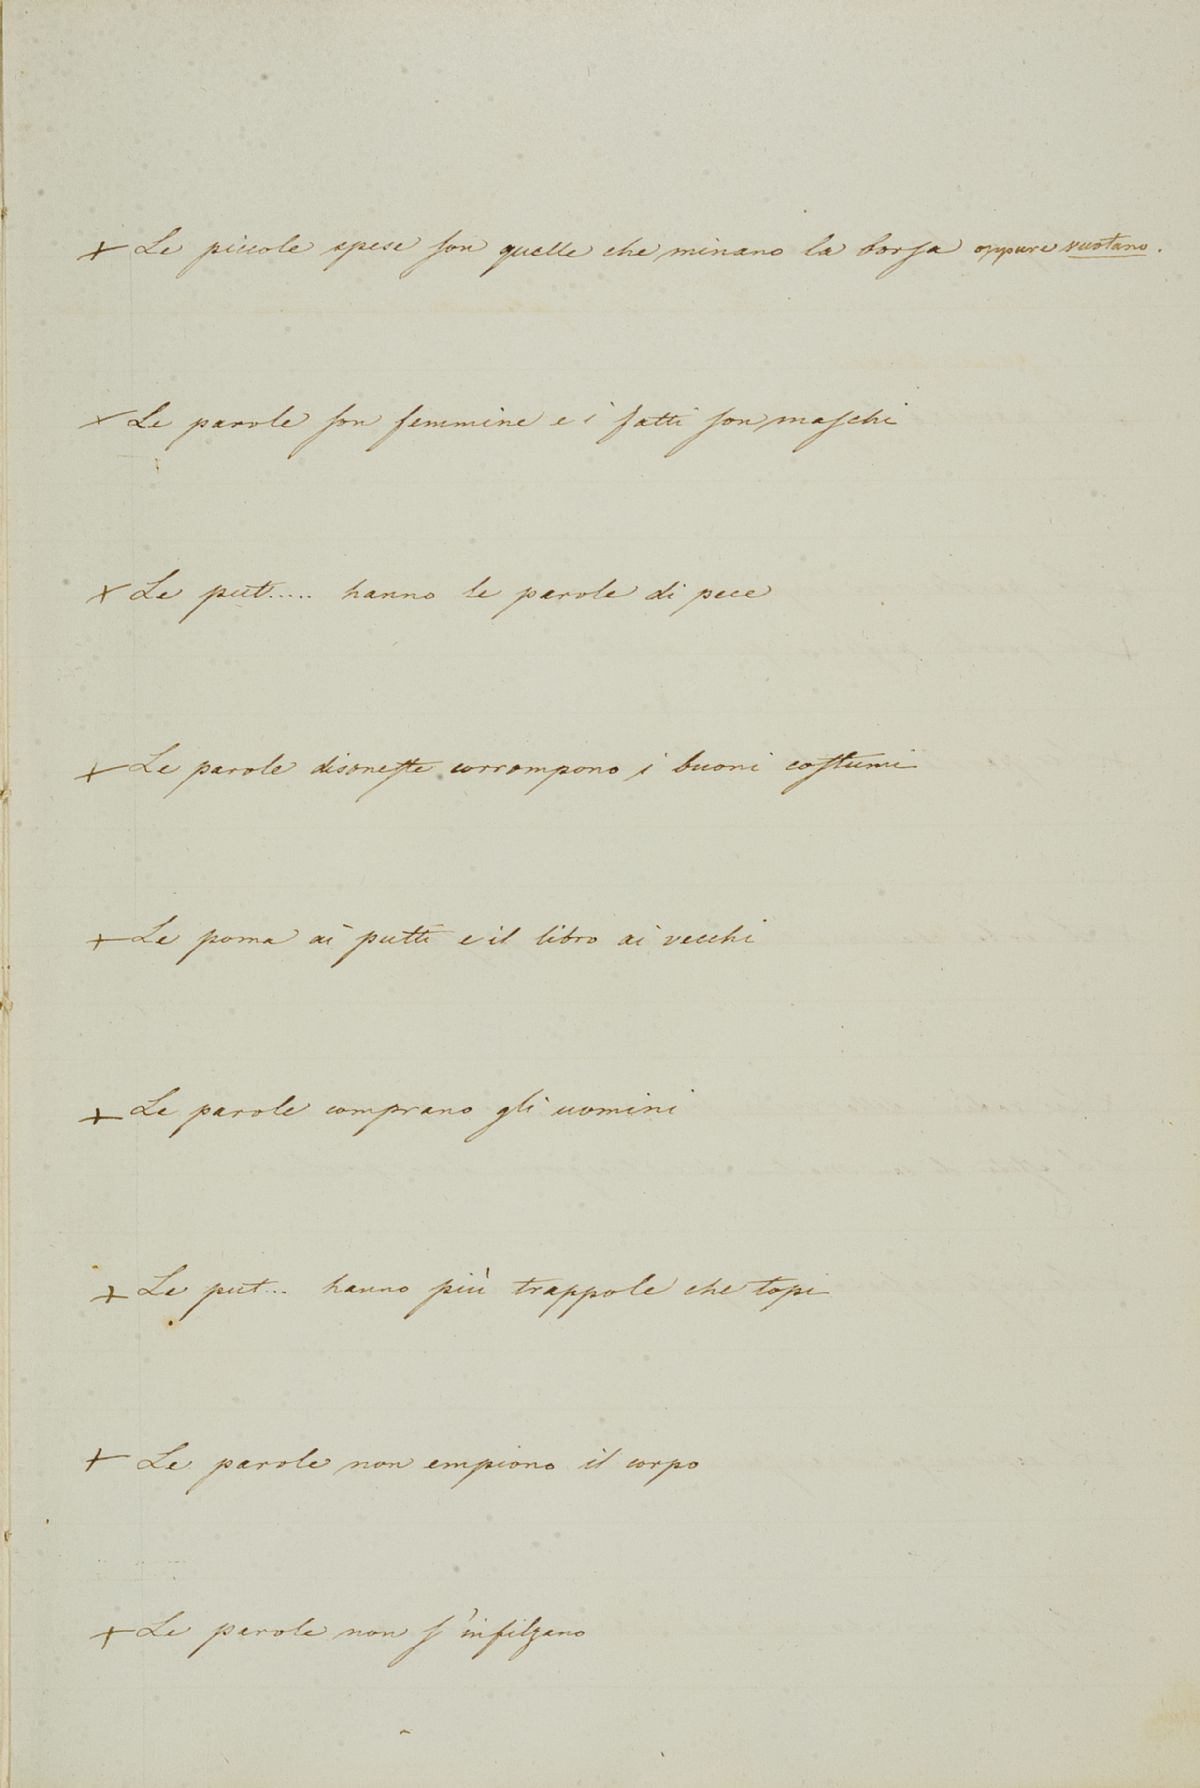 + Le piccole spese son quelle che minano la borsa oppure vuotano.
+ Le parole son femmine e i fatti son maschi
+ Le put..... hanno le parole di pece
+ Le parole disoneste corrompono i buoni costumi
+ Le poma ai putti e il libro ai vecchi
+ Le parole comprano gli uomini
+ Le put... hanno più trappole che topi
+ Le parole non empiono il corpo
+ Le parole non s'infilzano